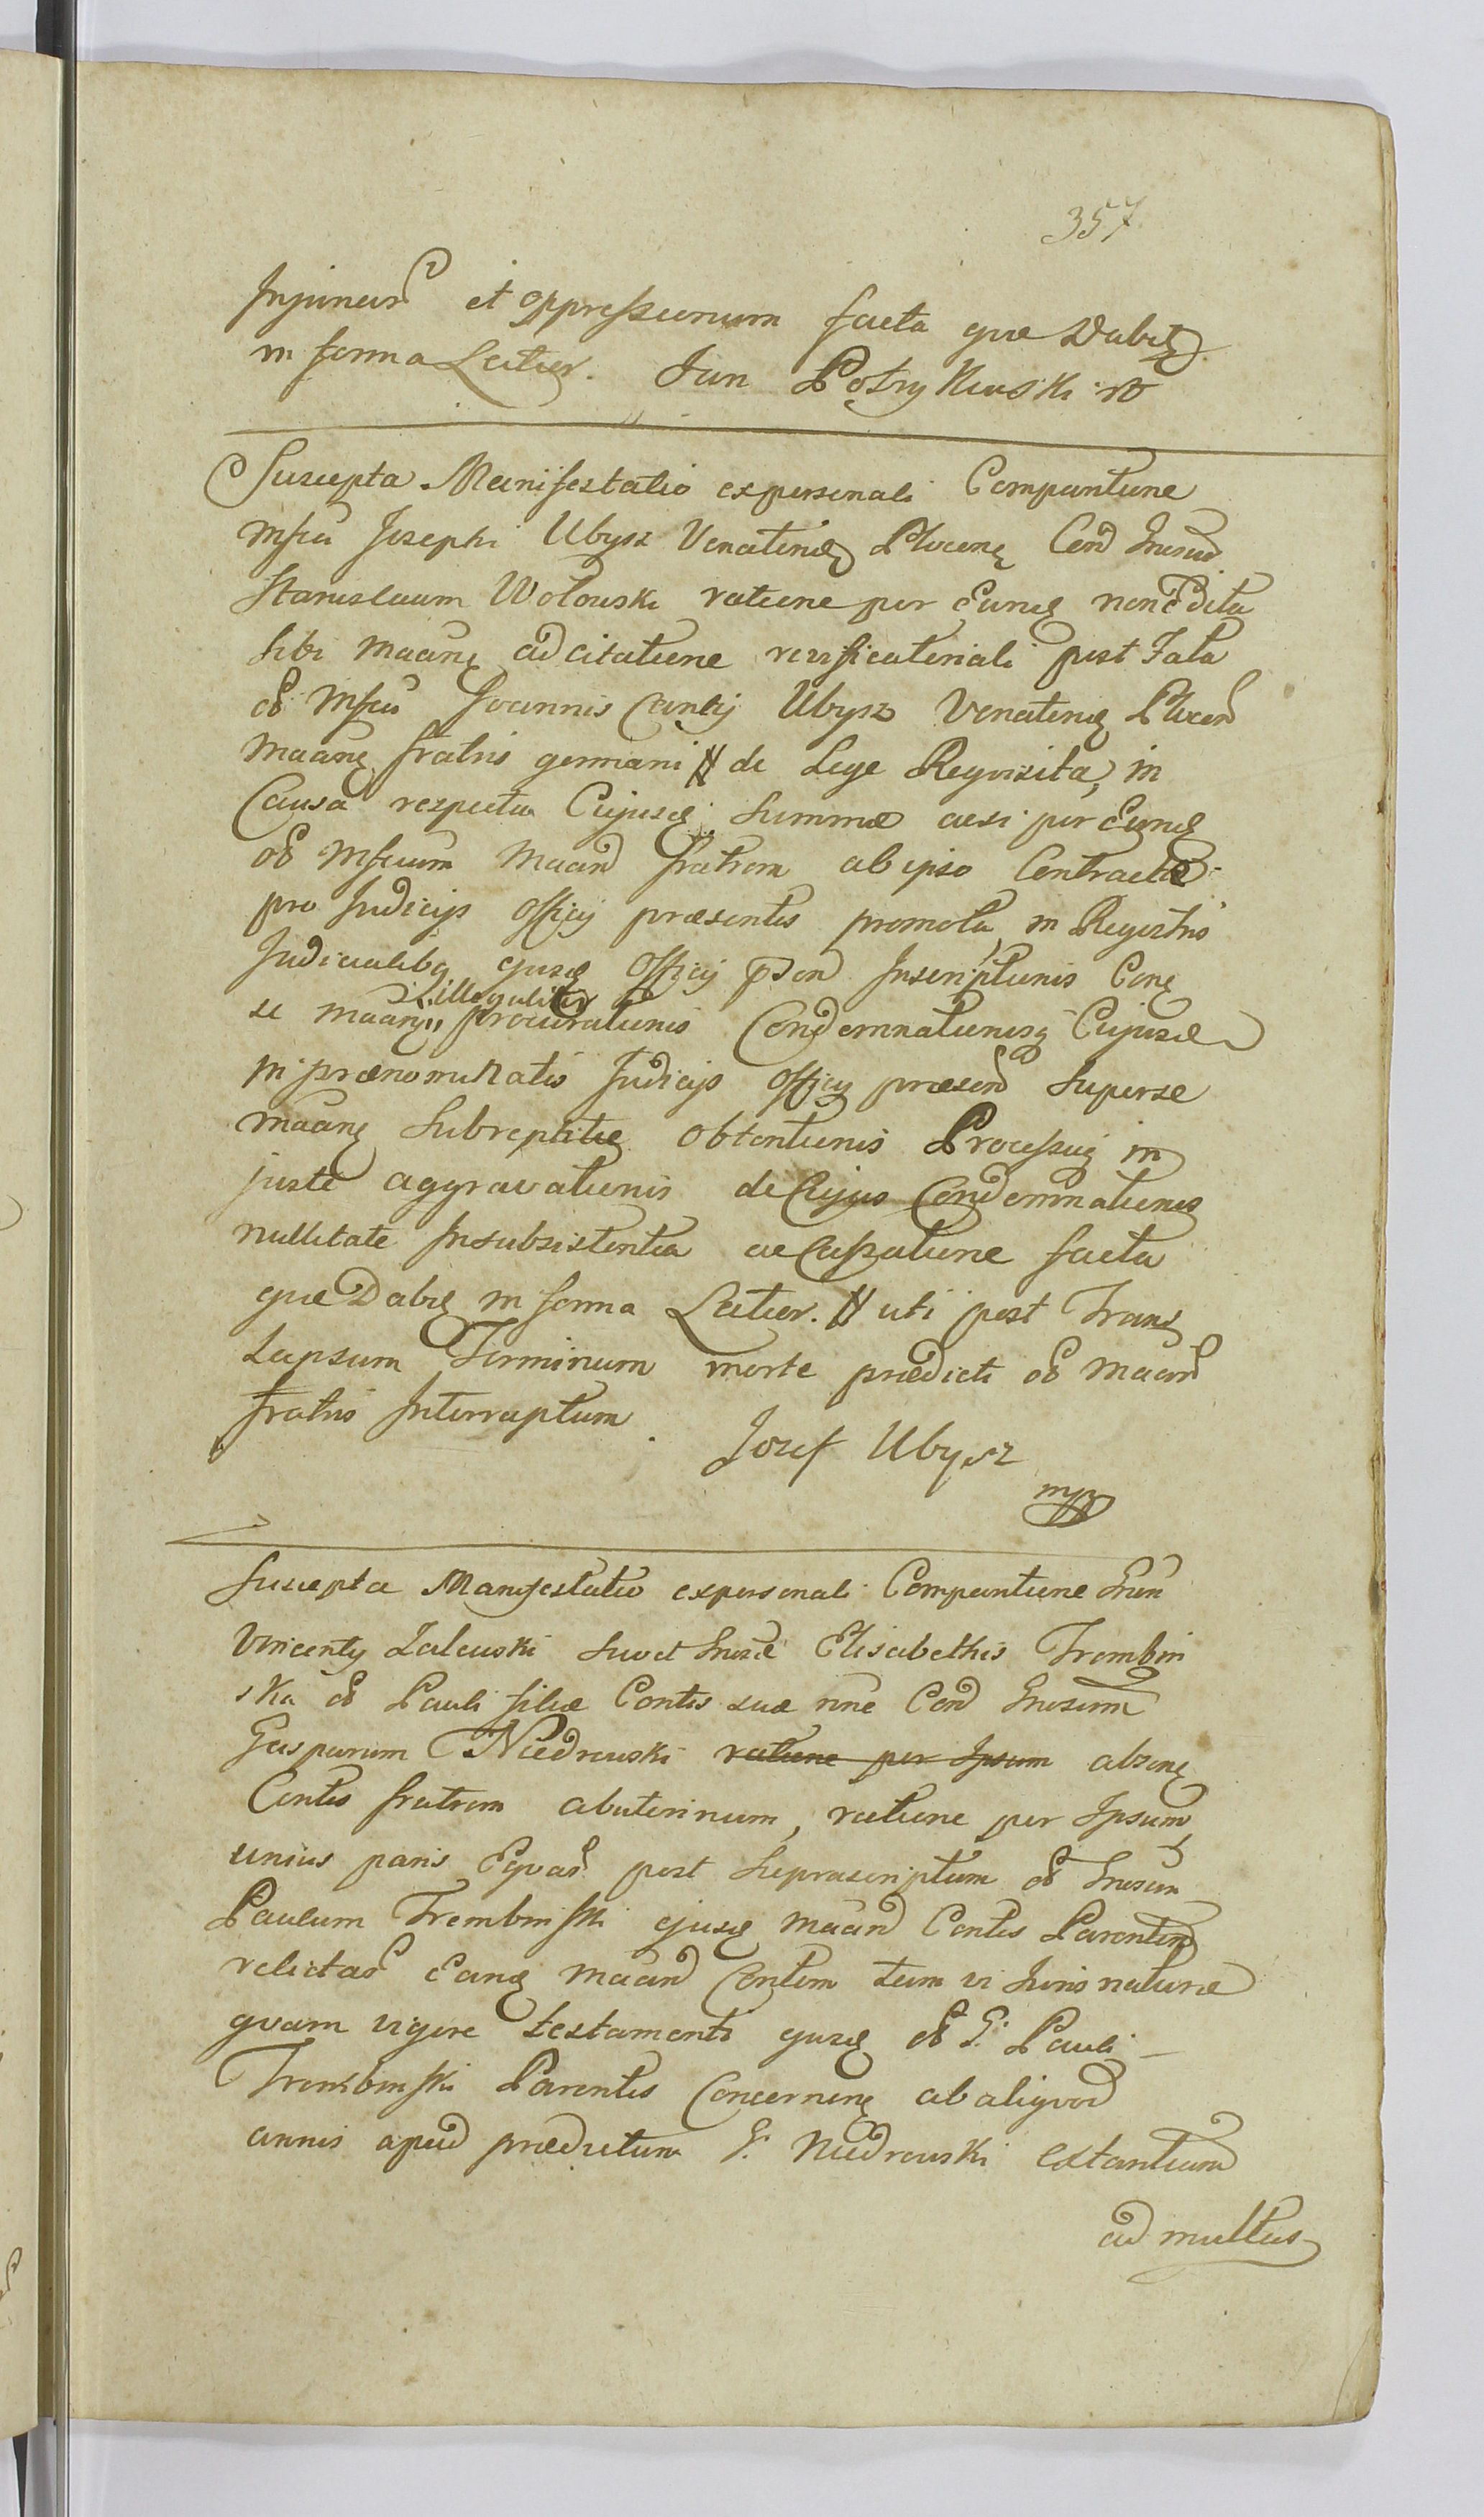 357
Injuriar et oppressionum facta quæ Dabit
in forma Latior. Jan Potrykowski rt
Suscepta Manifestatio ex personali Comparitione
Mfici Josephi Ubysz Venatoris Plocens Cond Grosum
Stanislaum Wolowski ratione per Eund non Edita
sibi Maanq adcitatione verificatoriali post Fata
od Mfici Joannis Cantij Ubysz Venatoris Plocen
Maanq fratris germani # de Lege Reqvisita, in
Causa respectu Cujusd Summæ acsi per Eund
od Mficum Maand fratrem ab ipso Contractæ
pro Judicijs Officij præsentis promota, in Registris
Judicialibq ejusd Officij pson Inscriptionis Conq
se Maanq " procurationis Condemnationisq Cujusd
" illegaliter
in prænominatis Judicijs Officij præsen Super se
Maanq Subreptitie obtentionis Processuq in
juste aggravationis de Cujus Condemnationis
nullitate Insubsistentia ac Cassatione facta
quæ Dabit in forma Latior. # uti post Trans
Lapsum Terminum morte prædicti od Maan
fratris Interruptum.
Jozef Ubysz
mpp
Suscepta Manifestatio ex personali Comparitione Grosi
Vincenty Zalewski suo et Grosæ Elisabethis Trembin
ska od Pauli filiæ Contis suæ nne Cond Grosum
Gasparum Niedrowski ratione per Ipsum absenq
Contis fratrem abuterinum, ratione per Ipsum
unius paris Eqvar post Suprascriptum od Grosum
Paulum Trembinski ejusd Maand Contis Parentem
relictar Eanq Maand Contem tum vi Juris naturæ
qvam vigore testamenti ejusd od G. Pauli
Trembinski Parentis Concernenq ab aliqvod
annis apud prædictum G. Niedrowski extantium
ad multas